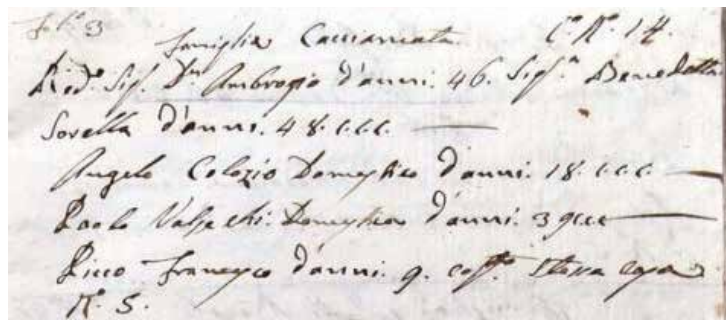 famiglia Caccianiata C.ª N.º 14
Rev.do Sig.r D.n Ambrogio d'anni. 46. Sig.ra Benedetta
Sorella d'anni. 48. c.c.c.
Angelo Colozio Domestico d'anni. 18. c.c.c.
Paolo Domestico d'anni. 39 ccc
Ricco Francesco d'anni. 9. stessa casa
N.º 5.